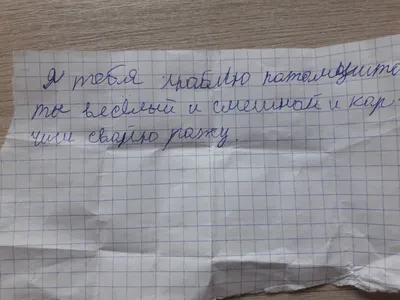 Я тебя люблю патамушто
ты весёлый и смешной и кар-
чиш свайю рожу